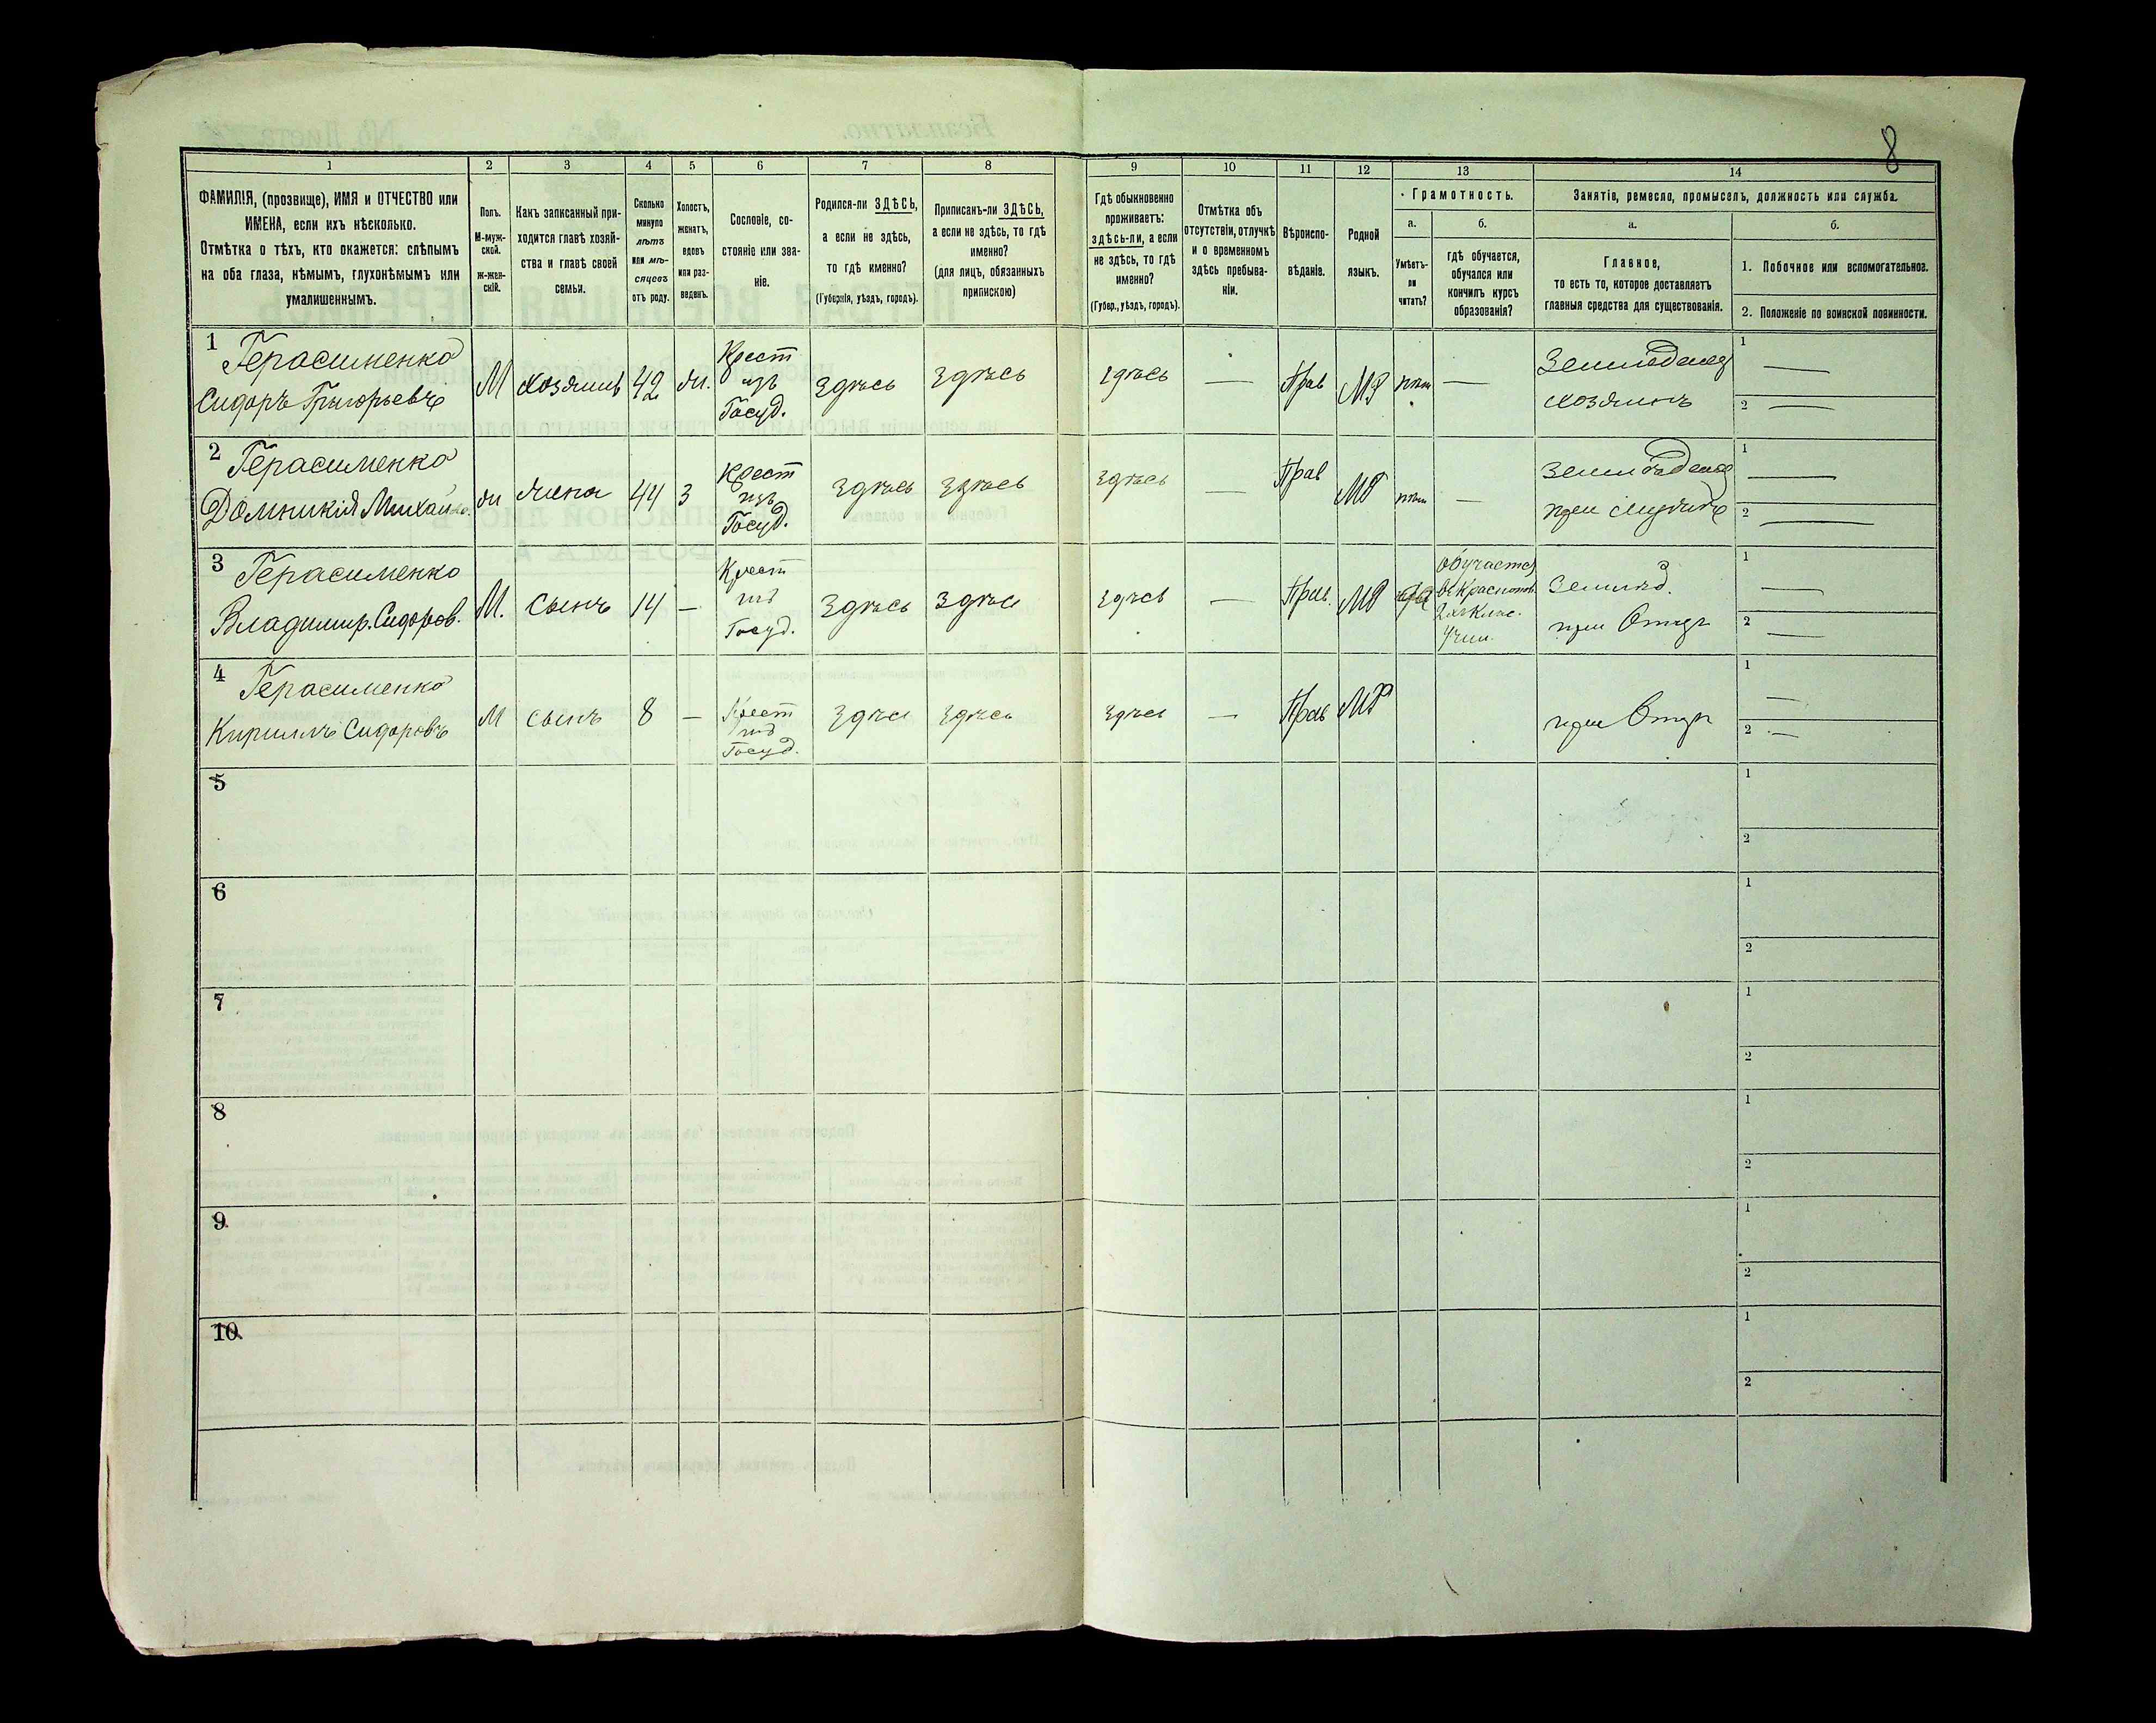 8
1 2 3 4 5 6 7 8 9 10 11 12 13 14
ФАМИЛІЯ, (прозвище), ИМЯ и ОТЧЕСТВО или
ИМЕНА, если ихъ нѣсколько.
Отмѣтка о тѣхъ, кто окажется: слѣпымъ
на оба глаза, нѣмымъ, глухонѣмымъ или
умалишеннымъ.
Полъ.
М-муж-
ской.
ж-жен-
скій.
Какъ записанный при-
ходится главѣ хозяй-
ства и главѣ своей
семьи.
Сколько
минуло
лѣтъ
или мѣ-
сяцевъ
отъ роду.
Холостъ,
женатъ,
вдовъ
или раз-
веденъ.
Сословіе, со-
стояніе или зва-
ніе.
Родился-ли ЗДѢСЬ,
а если не здѣсь,
то гдѣ именно?
(Губернія, уѣздъ, городъ).
Приписанъ-ли ЗДѢСЬ,
а если не здѣсь, то гдѣ
именно?
(для лицъ, обязанныхъ
припискою)
Гдѣ обыкновенно
проживаетъ:
здѣсь-ли, а если
не здѣсь, то гдѣ
именно?
(Губер., уѣздъ, городъ).
Отмѣтка объ
отсутствіи, отлучкѣ
и о временномъ
здѣсь пребыва-
ніи.
Вѣроиспо-
вѣданіе.
Родной
языкъ.
Грамотность.
а.
Умѣетъ-
ли
читать?
б.
гдѣ обучается,
обучался или
кончилъ курсъ
образованія?
Занятіе, ремесло, промыселъ, должность или служба.
а.
Главное,
то есть то, которое доставляетъ
главныя средства для существованія.
б.
1. Побочное или вспомогательное.
2. Положеніе по воинской повинности.
1
Герасименко
Сидоръ Григорьевъ
М
хозяинъ
42
жи.
Крест
изъ
Госуд.
Здѣсь
Здѣсь
Здѣсь
—
Прав
МР
нѣт
—
хозяинъ
1 —
2 —
2
Герасименко
Домникія
ж
жена
44
З
Крест
изъ
Госуд.
Здѣсь
Здѣсь
Здѣсь
—
Прав
МР
нѣт
—
при мужѣ
1 —
2 —
3
Герасименко
Владимир. Сидоров.
М.
сынъ
14
—
Крест
изъ
Госуд.
Здѣсь
Здѣсь
Здѣсь
—
Прав.
МР
да
обучается
2хъ Клас.
Учил.
Землед.
при Отцѣ
1 —
2 —
4
Герасименко
Кириллъ Сидоровъ
М
сынъ
8
—
Крест
изъ
Госуд.
Здѣсь
Здѣсь
Здѣсь
—
Прав
МР
при Отцѣ
1 —
2 —
5
1
2
6
1
2
7
1
2
8
1
2
9
1
2
10
1
2